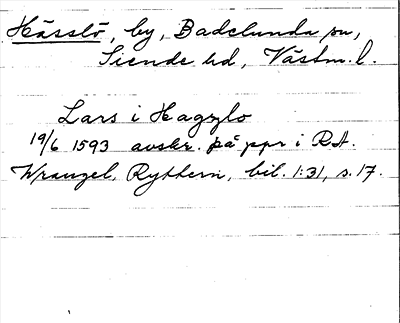 Hässlö, by, Badelunda sn,
Siende hd, Västm. l.
Lars i Hagzlo
19/6 1593 avskr. på ppr i RA.
Wrangel, Ryttern, bil. 1:31, s. 17.